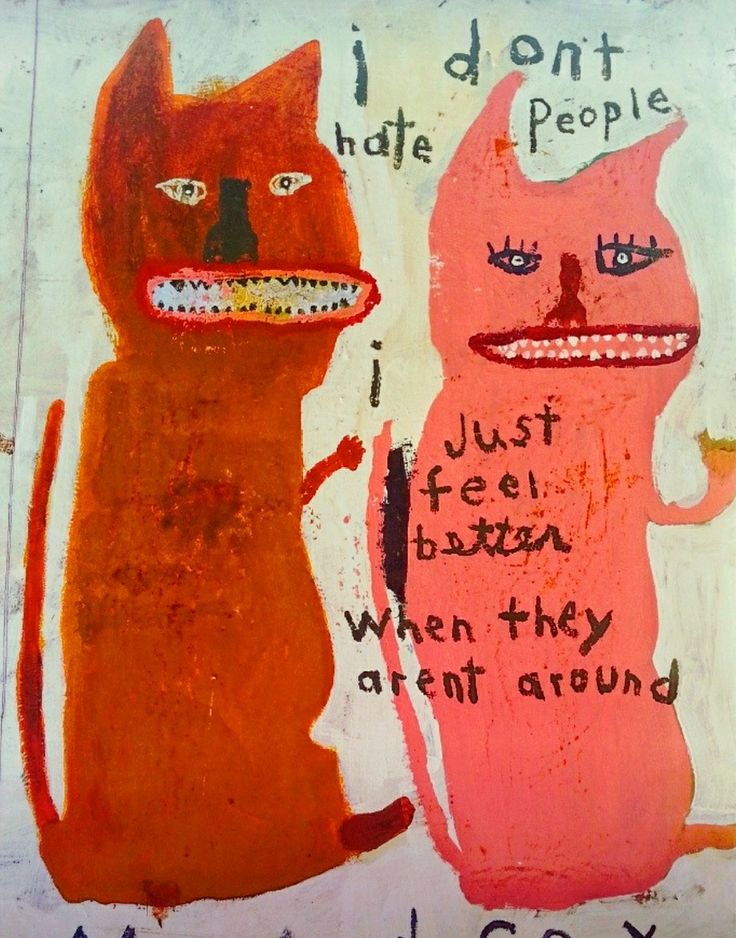 i dont
hate people
i
Just
feel
better
when they
arent around